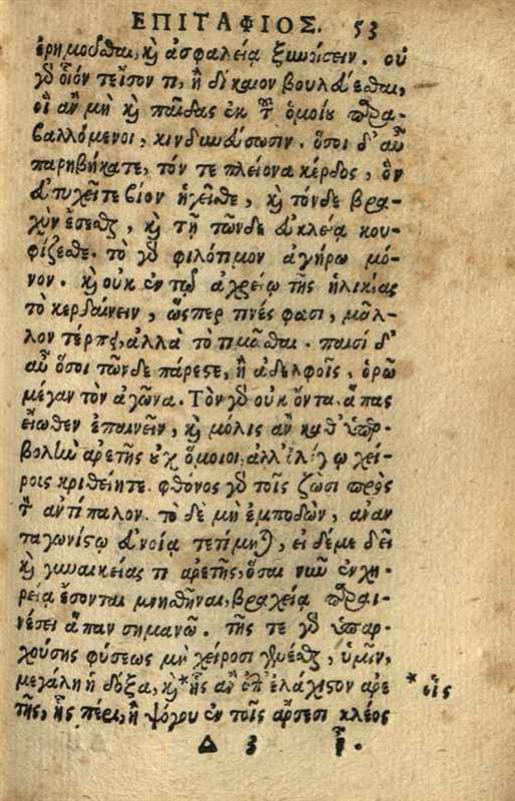 ΕΠΙΤΑΦΙΟΣ. 53
ἐρημοῦσθαι, καὶ ἀσφαλείᾳ ξυνοίσειν. οὐ
γὰρ οἷόν τε ἶσον τι, ἢ δίκαιον βουλεύεσθαι,
οἳ ἂν μὴ καὶ παῖδας ἐκ τοῦ ὁμοίου παρα-
βαλλόμενοι, κινδυνεύσωσιν. ὅσοι δ' αὖ
παρηβήκατε, τόν τε πλείονα κέρδος, ὃν
εὐτυχεῖτε βίον ἡγεῖσθε, καὶ τόνδε βρα-
χὺν ἔσεσθαι, καὶ τῇ τῶνδε εὐκλείᾳ κου-
φίζεσθε. τὸ γὰρ φιλότιμον ἀγήρω μό-
νον. καὶ οὐκ ἐν τῷ ἀχρείῳ τῆς ἡλικίας
τὸ κερδαίνειν, ὥσπερ τινές φασι, μᾶλ-
λον τέρπει, ἀλλὰ τὸ τιμᾶσθαι. παισί δ'
αὖ ὅσοι τῶνδε πάρεστε, ἢ ἀδελφοῖς, ὁρῶ
μέγαν τὸν ἀγῶνα. Τὸν γὰρ οὐκ ὄντα ἅπας
εἴωθεν ἐπαινεῖν, καὶ μόλις ἂν καθ' ὑπερ-
βολὴν ἀρετῆς οὐχ ὅμοιοι, ἀλλ' ὀλίγῳ χεί-
ροις κριθείητε. φθόνος γὰρ τοῖς ζῶσι πρὸς
τὸ ἀντίπαλον. τὸ δὲ μὴ ἐμποδὼν, ἀναν
ταγωνίστῳ εὐνοίᾳ τετίμηται, εἰ δέ με δεῖ
καὶ γυναικείας τι ἀρετῆς, ὅσαι νῦν ἐν χη-
ρείᾳ ἔσονται μνησθῆναι, βραχείᾳ παραι-
νέσει ἅπαν σημανῶ. τῆς τε γὰρ ὑπαρ-
χούσης φύσεως μὴ χείροσι γενέσθαι, ὑμῖν,
μεγάλη ἡ δόξα, καὶ *ἧς ἂν ἐπ' ἐλάχιστον ἀρε * οἷς
τῆς, ἧς πέρι, ἢ ψόγου ἐν τοῖς ἄρσεσι κλέος
Δ 3 ᾖ.